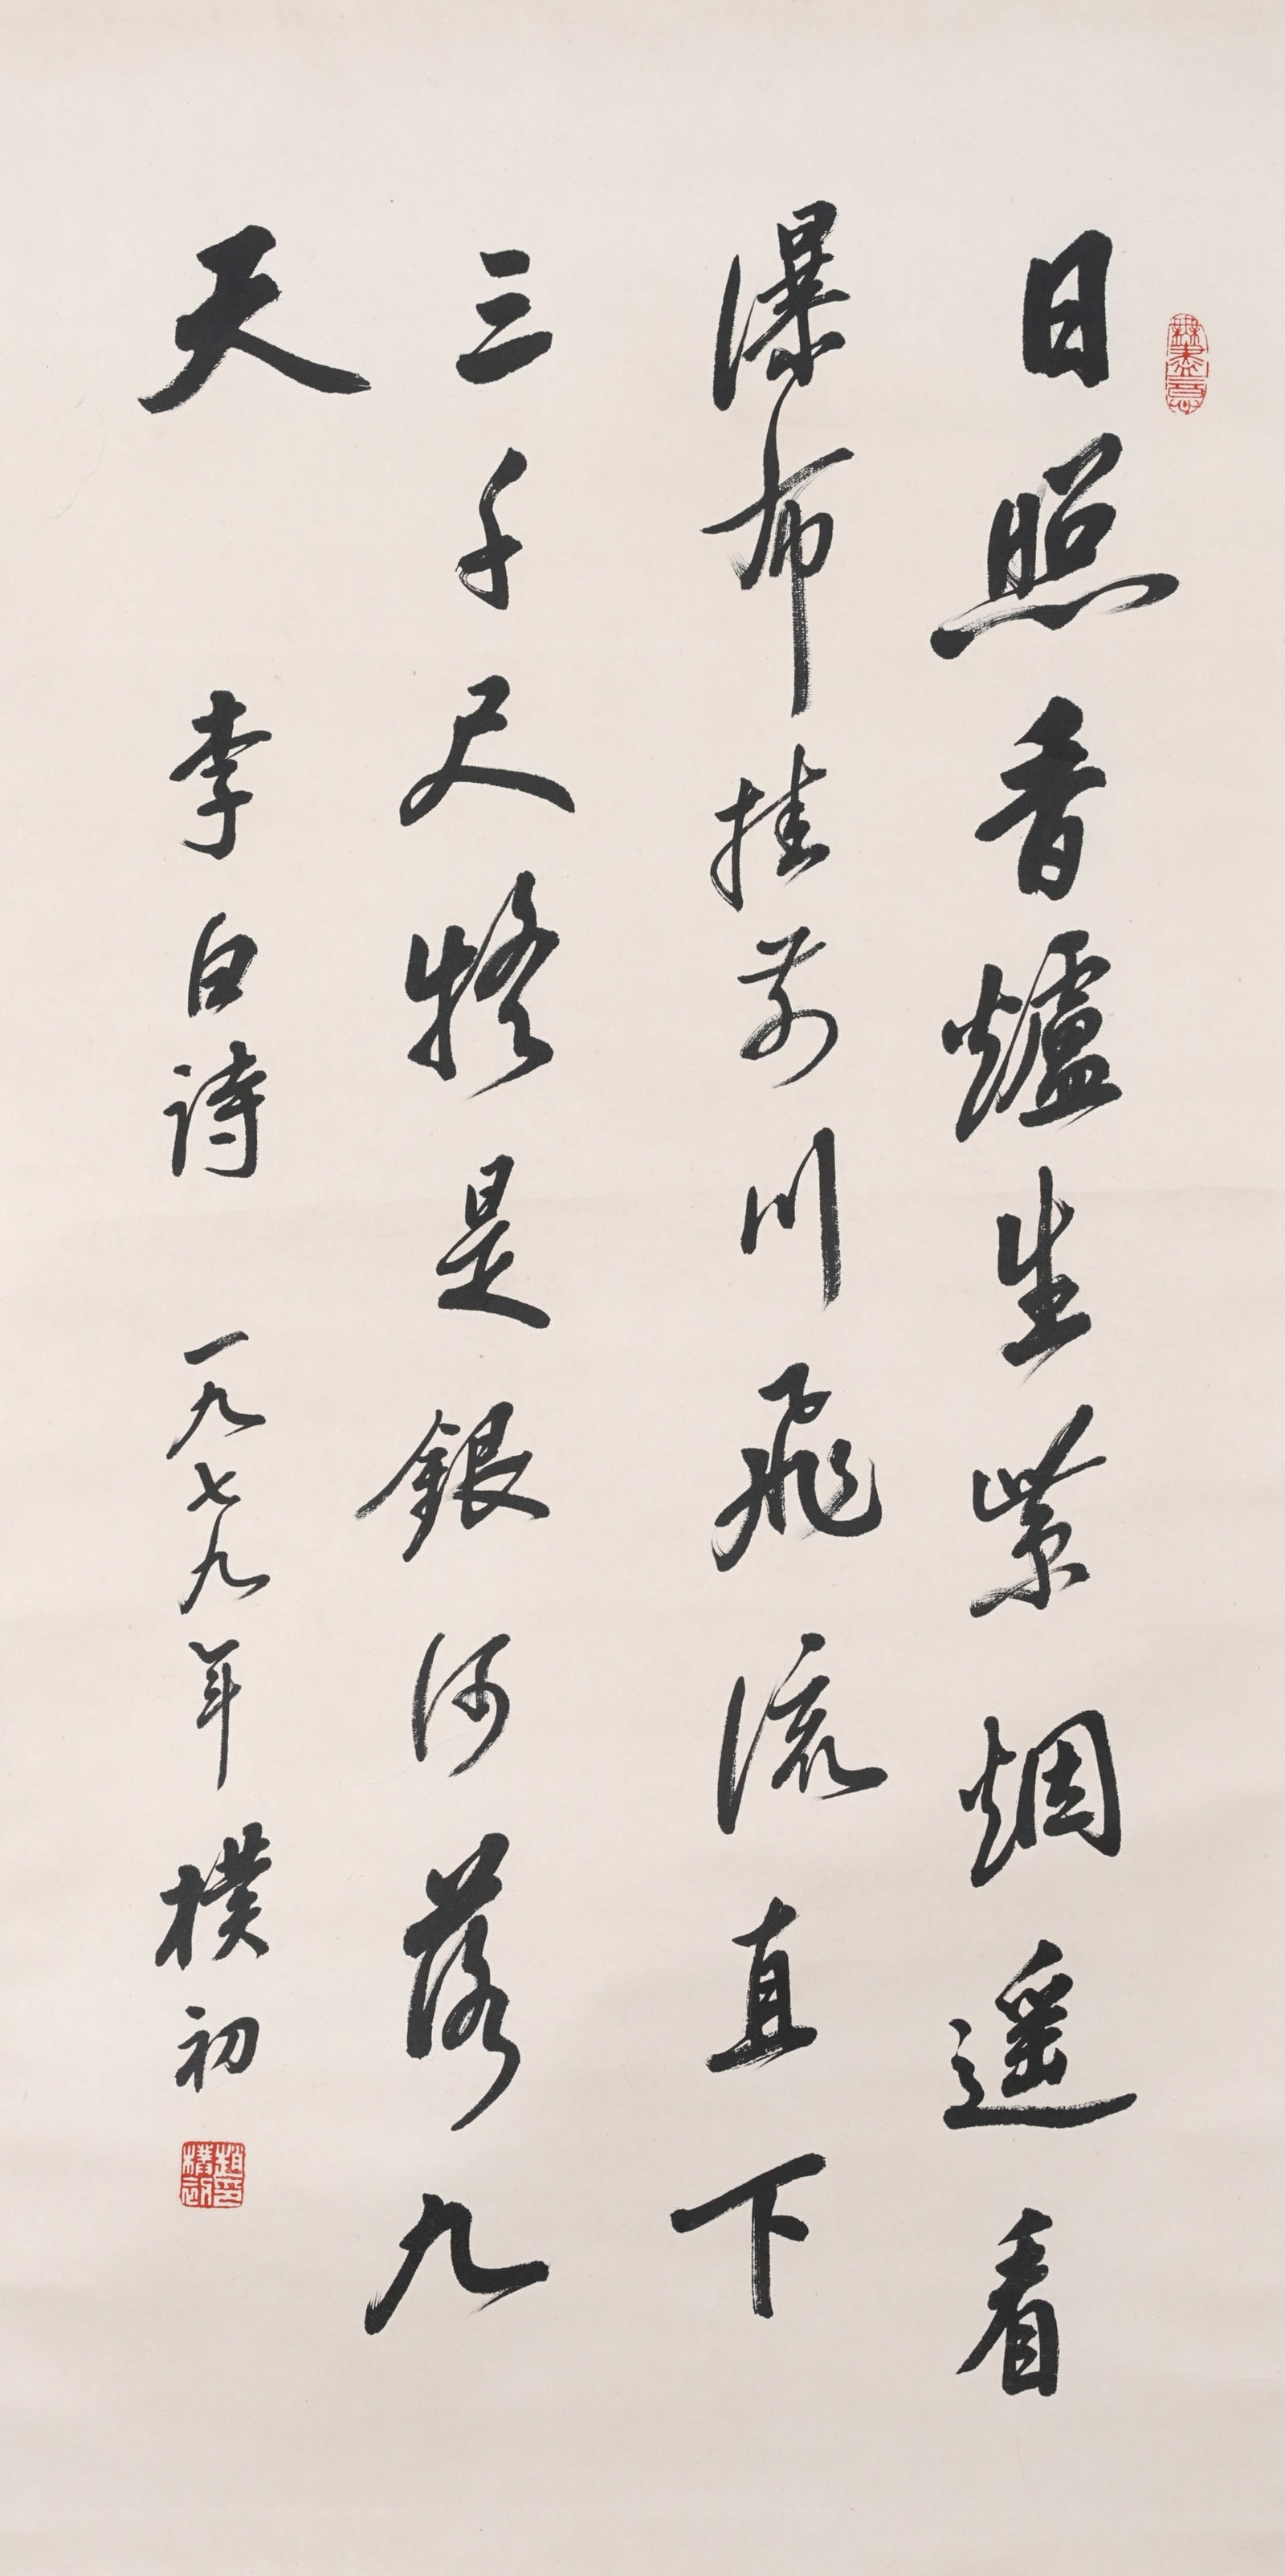 無盡意
日照香爐生紫烟遥看
瀑布挂前川飛流直下
三千尺疑是銀河落九
天
李白诗 一九七九年 樸初
趙樸初印